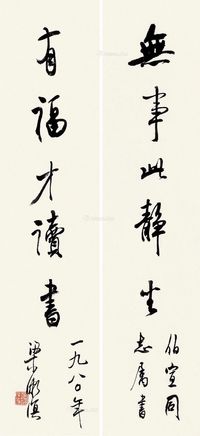 無事此靜坐
伯宣同
志属書
有福才讀書
一九八〇年
梁漱溟